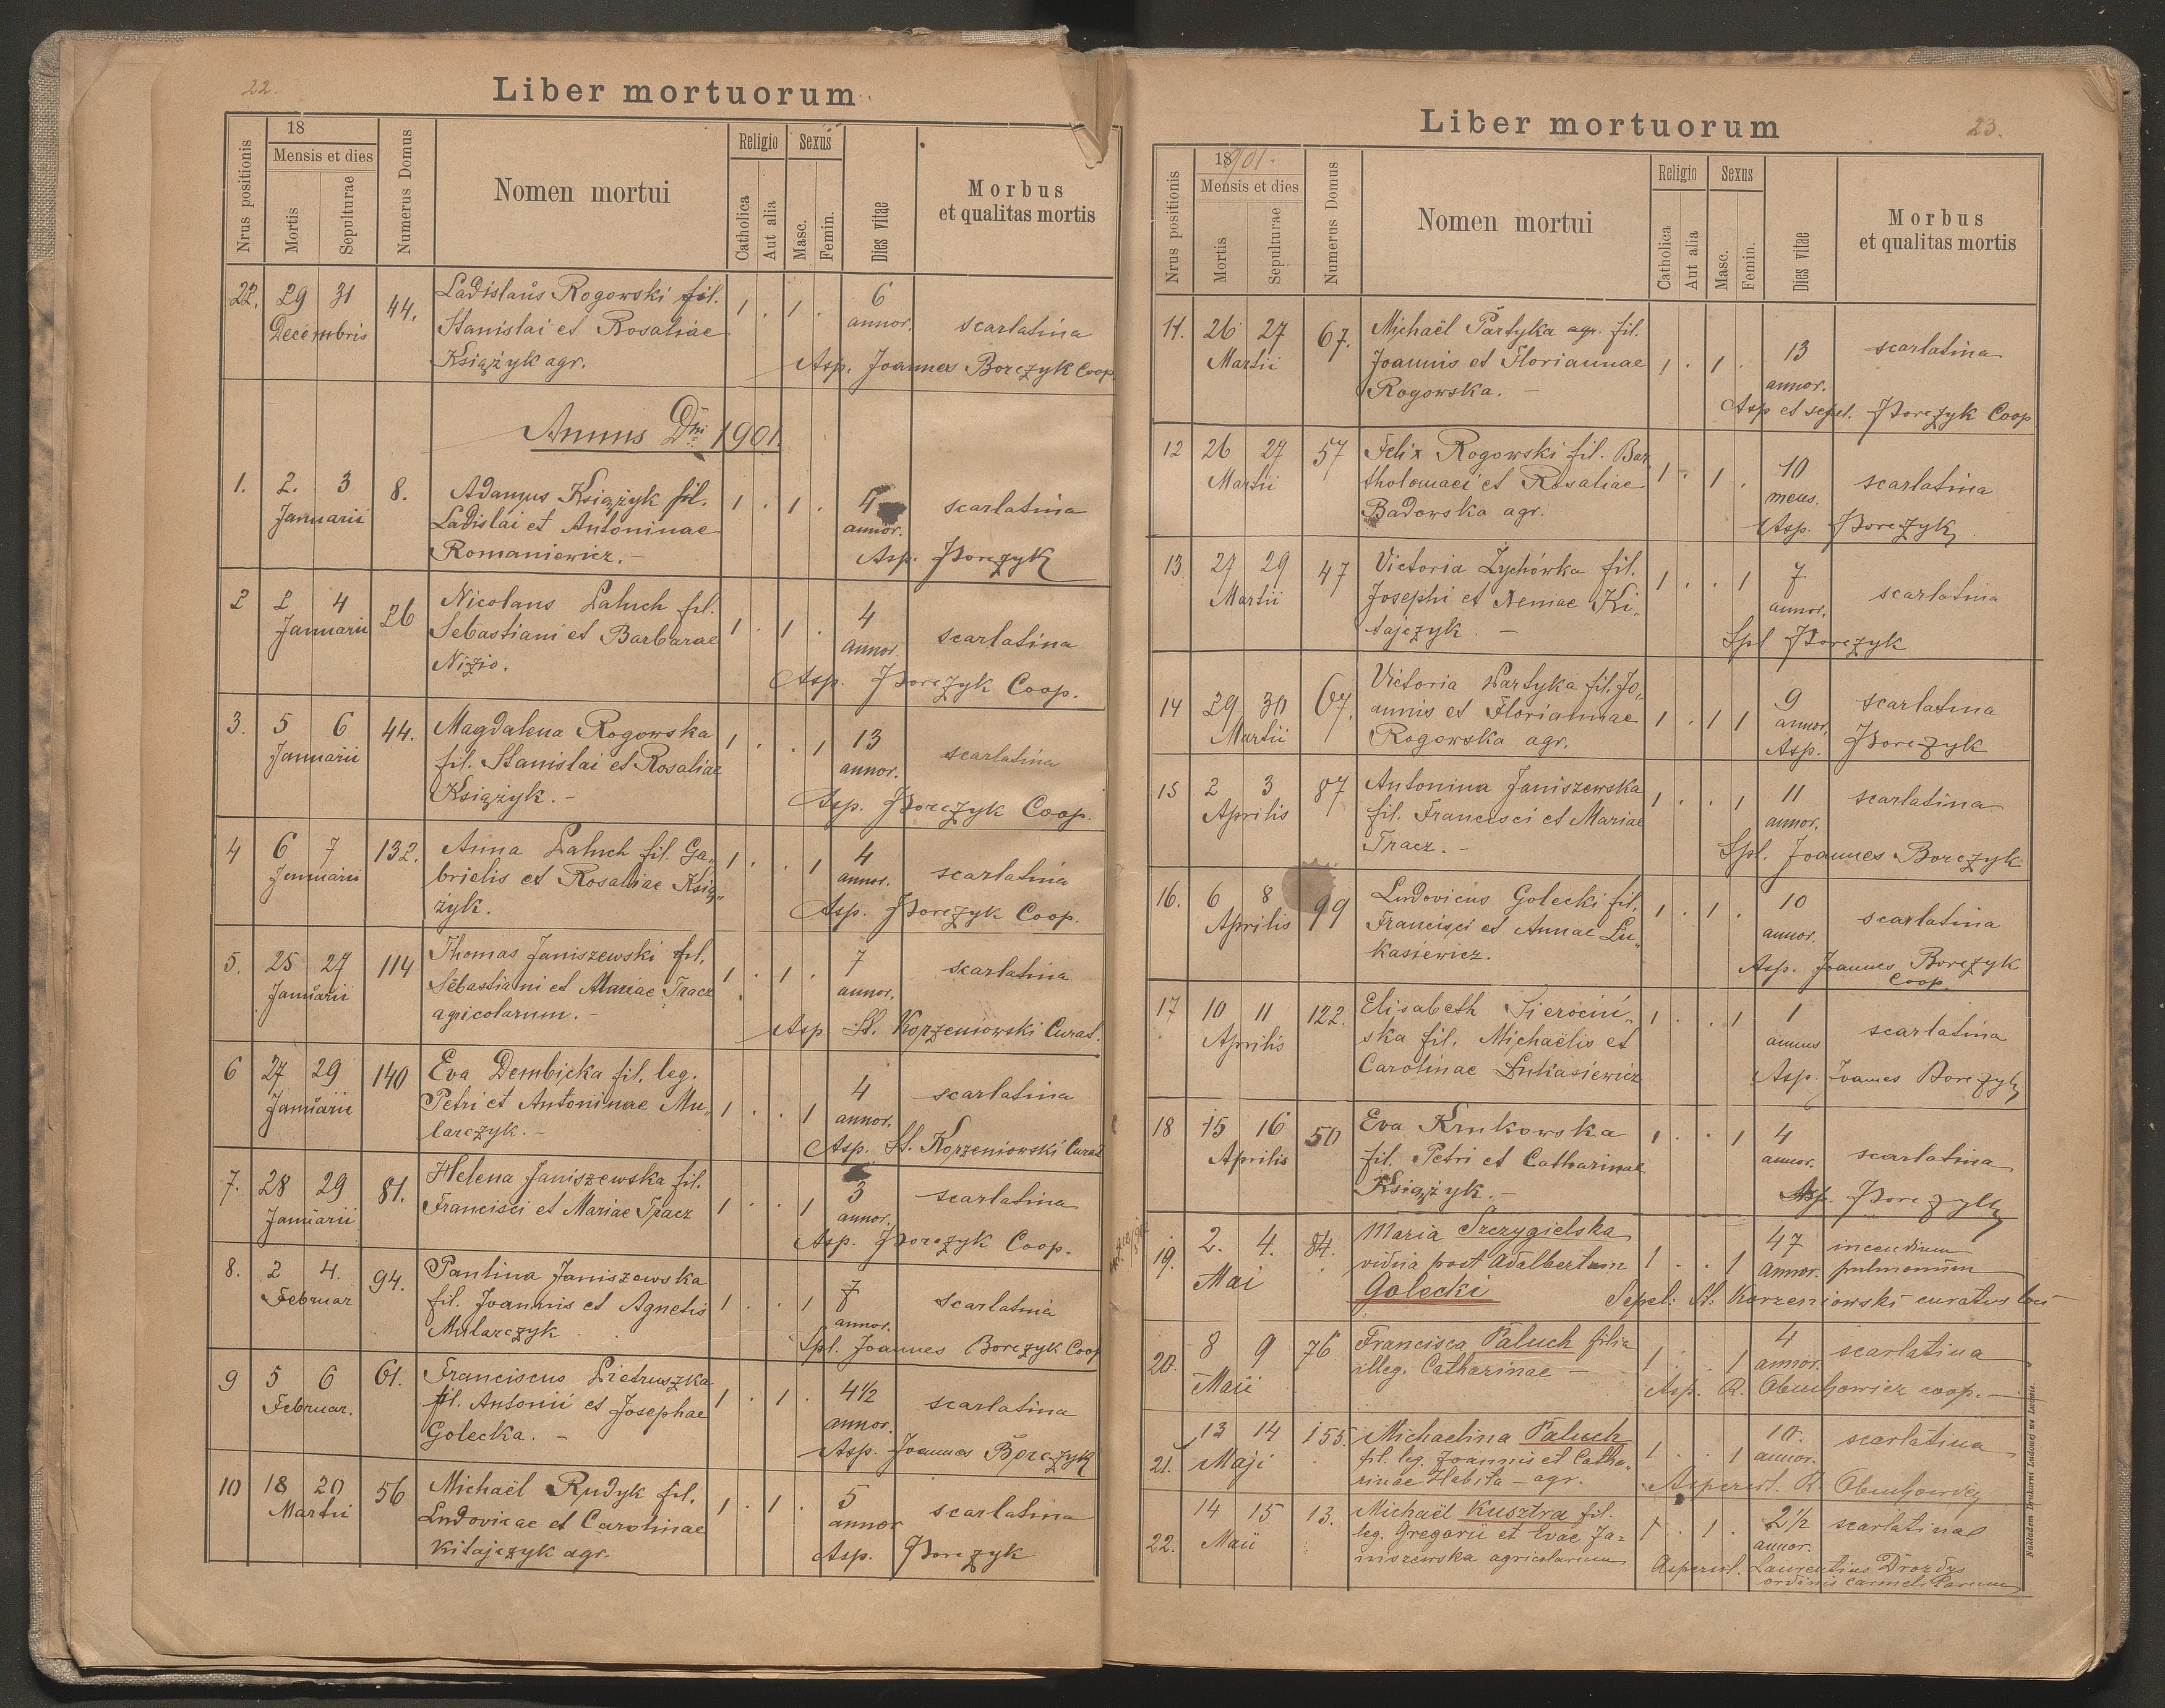 22.
Liber mortuorum
Nrus positionis
18
Mensis et dies
Mortis
Sepulturae
Numerus Domus
Nomen mortui
Religio
Catholica
Aut alia
Sexus
Masc.
Femin.
Dies vitae
Morbus
et qualitas mortis
22. 29 31 44. Ladislaus Rogowski fil. 1 . 1 . 6
Decembris Stanislai et Rosaliae annor. scarlatina
Książyk agr. Asp. Joannes Borczyk Coop.
Annus Dni 1901
1. 2. 3 8. Adamus Książyk fil. 1 . 1 . 4 scarlatina
Januarii Ladislai et Antoninae annor.
Romaniewicz. – Asp. Borczyk
2 2 4 26 Nicolaus Paluch fil. 4
Januarii Sebastiani et Barbarae 1 . 1 . annor. scarlatina
Nizio. Asp. Borczyk Coop.
3. 5 6 44. Magdalena Rogowska 1 . . 1 13
Januarii fil. Stanislai et Rosaliae annor. scarlatina
Książyk. – Asp. Borczyk Coop.
4 6 7 132. Anna Paluch fil. Ga„ 1 . . 1 4
Januarii brielis et Rosaliae Ksią„ annor. scarlatina
zyk. Asp. Borczyk Coop.
5. 25 27 114 Thomas Janiszewski fil. 1 . 1 . 7 scarlatina
Januarii Sebastiani et Mariae Tracz annor.
agricolarum. – Asp. St. Korzeniowski Curat.
6 27 29 140 Eva Dembicka fil. leg. 4 scarlatina
Januarii Petri et Antoninae Mu„ 1 . . 1 annor.
larczyk. – Asp. St. Korzeniowski Curat
7. 28 29 81. Helena Janiszewska fil. 3 scarlatina
Januarii Francisci et Mariae Tracz 1 . . 1 annor.
Asp. Borczyk Coop.
8. 2 4. 94. Paulina Janiszewska 7
Februar fil. Joannis et Agnetis 1 . . 1 annor. scarlatina
Mularczyk Spl. Joannes Borczyk Coop
9 5 6 61. Franciscus Pietruszka 4½
Februar. fil. Antonii et Josephae 1 . 1 . annor. scarlatina
Golecka. – Asp. Joannes Borczyk
10 18 20 56 Michaël Rudyk fil. 1 . 1 . 5 scarlatina
Martii Ludovicae et Carolinae annor
Kitajczyk agr. Asp. Borczyk
Liber mortuorum
23.
Nrus positionis
18901.
Mensis et dies
Mortis
Sepulturae
Numerus Domus
Nomen mortui
Religio
Catholica
Aut alia
Sexus
Masc.
Femin.
Dies vitae
Morbus
et qualitas mortis
11. 26 27 67. Michaël Partyka agr. fil.
Martii Joannis et Floriannae 1 . 1 . 13 scarlatina
Rogowska. – annor.
Asp et sepel. Borczyk Coop
12 26 27 57 Felix Rogowski fil. Bar„ 1 . 1 . 10
Martii tholomaei et Rosaliae mens. scarlatina
Badowska agr. Asp. Borczyk
13 27 29 47 Victoria Zychówka fil. 1 . . 1 7
Martii Josephi et Xeniae Ki„ annor. scarlatina
tajczyk. – Spl. Borczyk
14 29 30 67. Victoria Partyka fil. Jo„ 9 scarlatina
Martii annis et Floriannae 1 . 1 1 annor.
Rogowska agr. Asp. Borczyk
15 2 3 87 Antonina Janiszewska 1 . . 1 11 scarlatina
Aprilis fil. Francisci et Mariae annor.
Tracz. – Spl. Joannes Borczyk
16. 6 8 99 Ludovicus Golecki fil. 1 . 1 . 10
Aprilis Francisci et Annae Łu„ annor. scarlatina
kasiewicz. Asp. Joannes Borczyk
Coop.
17 10 11 122. Elisabeth Sierociń„ 1 . . 1 1
Aprilis ska fil. Michaëlis et annus scarlatina
Carolinae Łukasiewicz Asp. Joannes Borczyk
18 15 16 50 Eva Krukowska 1 . . 1 4
Aprilis fil. Petri et Catharinae annor. scarlatina
Książyk. – Asp. Borczyk
19. 2. 4. 84. Maria Szczygielska 47 incendium
Mai vidua post Adalbertum 1 . . 1 annor. pulmonum
Golecki Sepel: St: Korzeniowski curatus loci
20. 8 9 76 Francisca Paluch filia 4 scarlatina
Maii illeg. Catharinae – 1 . . 1 annor.
Asp. R. Obuchowicz coop. –
21. 13 14 155. Michaelina Paluch 10. scarlatina
Maji fil. leg. Joannis et Catha„ 1 . . 1 annor.
rinae Hebita – agr. Aspersit. R.
22. 14 15 13. Michaël Kusztra fil. 1 . 1 . 2½ scarlatina
Maii leg. Gregorii et Evae Ja= annor.
niszewska agricolarum Aspersit. Laurentius Drozdys
ordinis carmelitarum
Nakładem Drukarni Ludowej we Lwowie.